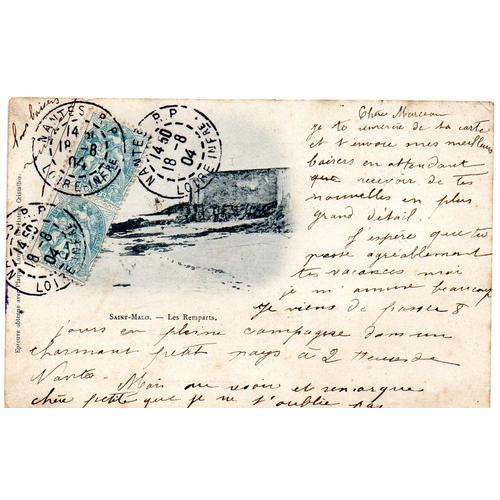 Chère Marceau
je te remercie de ta carte
et t'envoie mes meilleurs
baisers en attendant
que recevoir de tes
nouvelles en plus
grand détail.
J'espère que tu
passe agréablement
tes vacances moi
je m'amuse beaucoup
Je viens de passer 8
jours en pleine campagne dans un
charmant petit pays à 2 heures de
Nantes. Mais au revoir et remarque
chère petite que je ne t'oublie pas
SAINT-MALO. — Les Remparts.
NANTES R.P.
14 50
18 -8
04
LOIRE-INFRE
NANTES R.P.
14
18 -8
04
LOIRE-INFRE
NANTES R.P.
14 50
18 -8
04
bons baisers
Epreuve obtenue avec Plaques